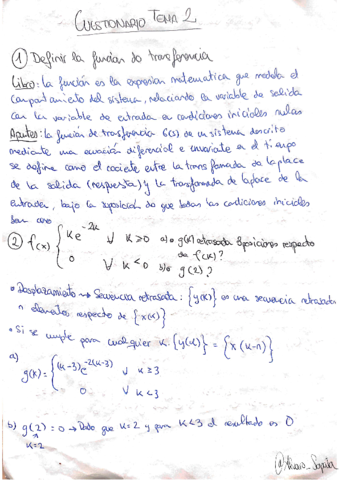 CUESTIONARIO TEMA 2
① Definir la función de transferencia
Libro: la función es la expresion matematica que modela el
comportamiento del sistema, relaciando la variable de salida
con la variable de entrada en condiciones iniciales nulas
Apuntes: la función de transferencia G(s) de un sistema descrito
mediante una ecuación diferencial e invariante en el tiempo
se define como el cociente entre la transformada de laplace
de la salida (respuesta) y la transformada de laplace de la
entrada, bajo la suposición de que todas las condiciones iniciales
son cero
② f(x) { K e^-2k ∀ K≥0 a) g(k) retrasada 3 posiciones respecto
de f(k)?
0 ∀ K<0 b) g(2)?
• Desplazamiento → Secuencia retrasada: {y(k)} es una secuencia retrasada
n elementos respecto de {x(k)}
• Si se cumple para cualquier k: {y(k)} = {x(k-n)}
a)
g(k) = { (k-3)e^-2(k-3) ∀ K≥3
0 ∀ K<3
b) g(2) = 0 → Dado que k=2 y para k<3 el resultado es 0
k=2